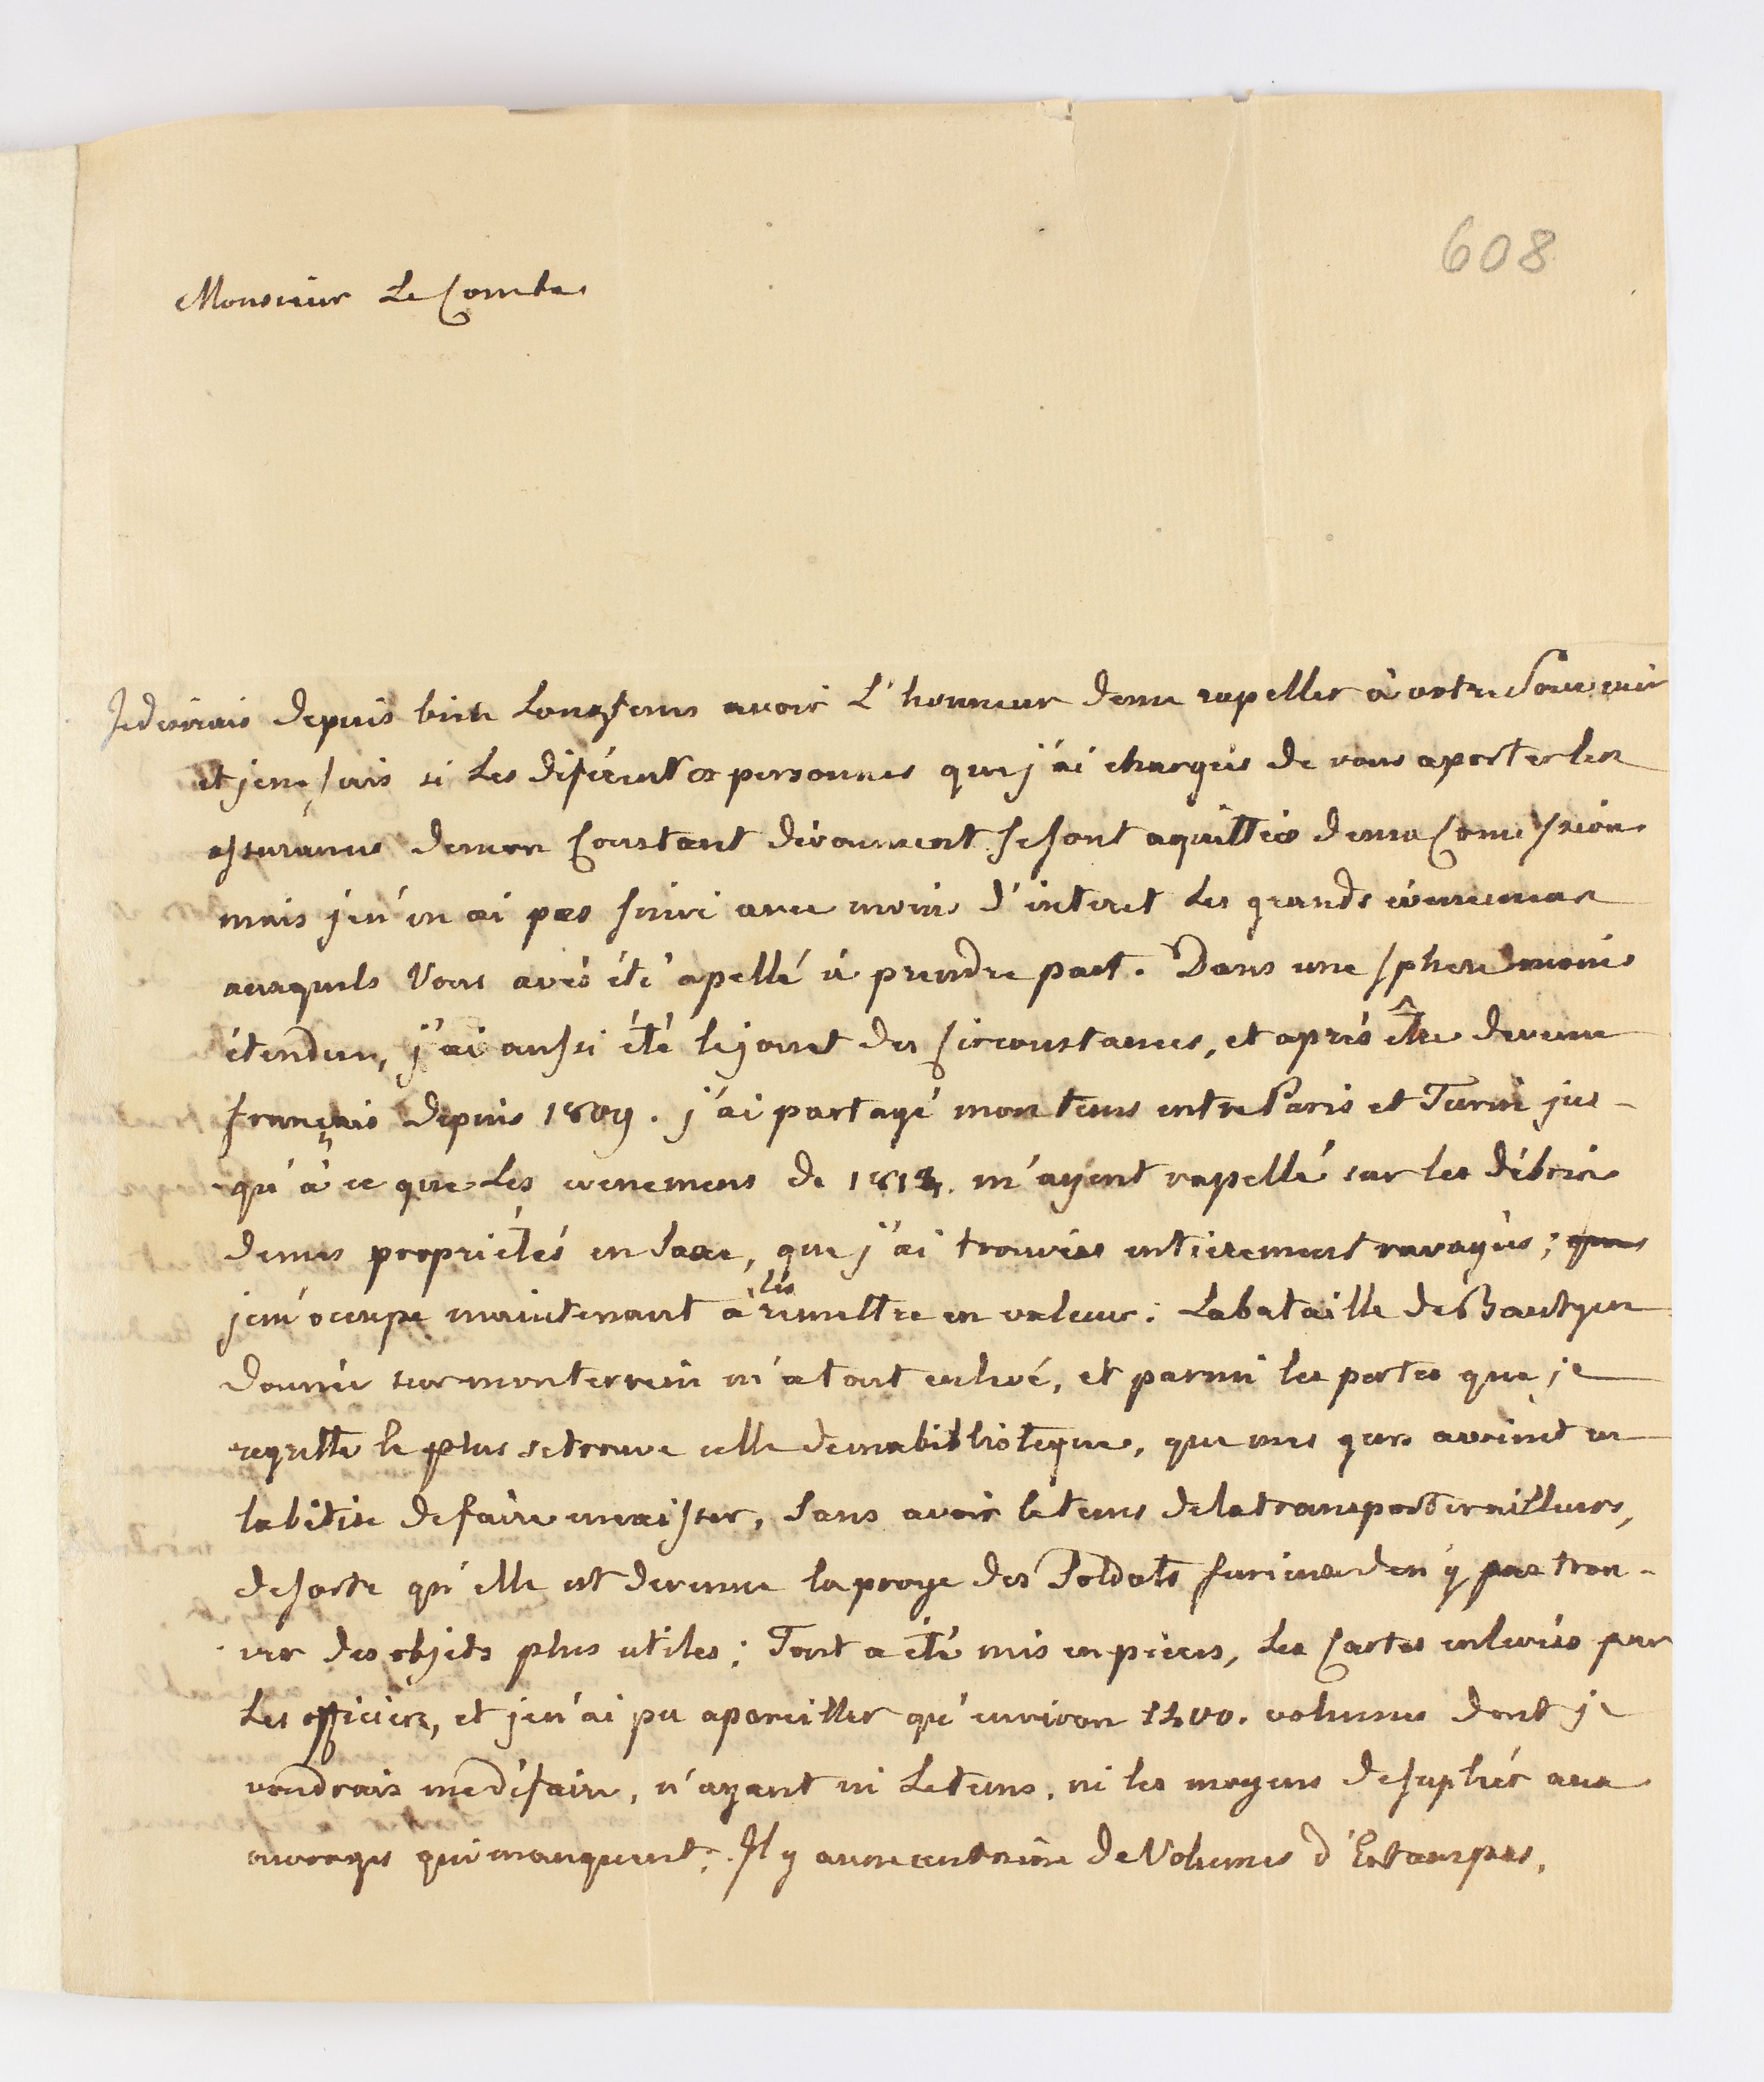 608
Monsieur Le Comte
Je desirais depuis bien Longtems avoir L'honneur de me rapeller à votre Souvenir
et je ne sais si Les diférentes personnes que j'ai chargées de vous aporter les
assurances de mon Constant dévouement se sont aquittées de ma Comission
mais je n'en ai pas suivi avec moins d'interet Les grands évenemens
auxquels Vous avés été apellé à prendre part. Dans une sphere moins
étendue, j'ai aussi été le jouet des Circonstances, et aprés être devenu
français depuis 1809. j'ai partagé mon tems entre Paris et Turin jus-
qu'à ce que Les evenemens de 1813. m'ayent rapellé sur les débris
de mes propriétés en Saxe, que j'ai trouvées entierement ravagées;
je m'ocupe maintenant à les remettre en valeur. La bataille de Bautzen
donnée sur mon terrein m'a tout enlevé, et parmi les pertes que je
regrette le plus se trouve celle de ma biblioteque, que mes gens avoient eu
la bétise de faire encaisser, Sans avoir le tems de la transporter ailleurs,
de sorte qu'elle est devenue la proye des Soldats furieux de n'y pas trou-
ver des objets plus utiles; Tout a été mis en pieces, Les Cartes enlevées par
Les officiers, et je n'ai pu apareiller qu'environ 1200. volumes dont je
voudrais me défaire, n'ayant ni Le tems, ni les moyens de supléér aux
ouvrages qui manquent. Il y a une centaine de Volumes d'Estampes,